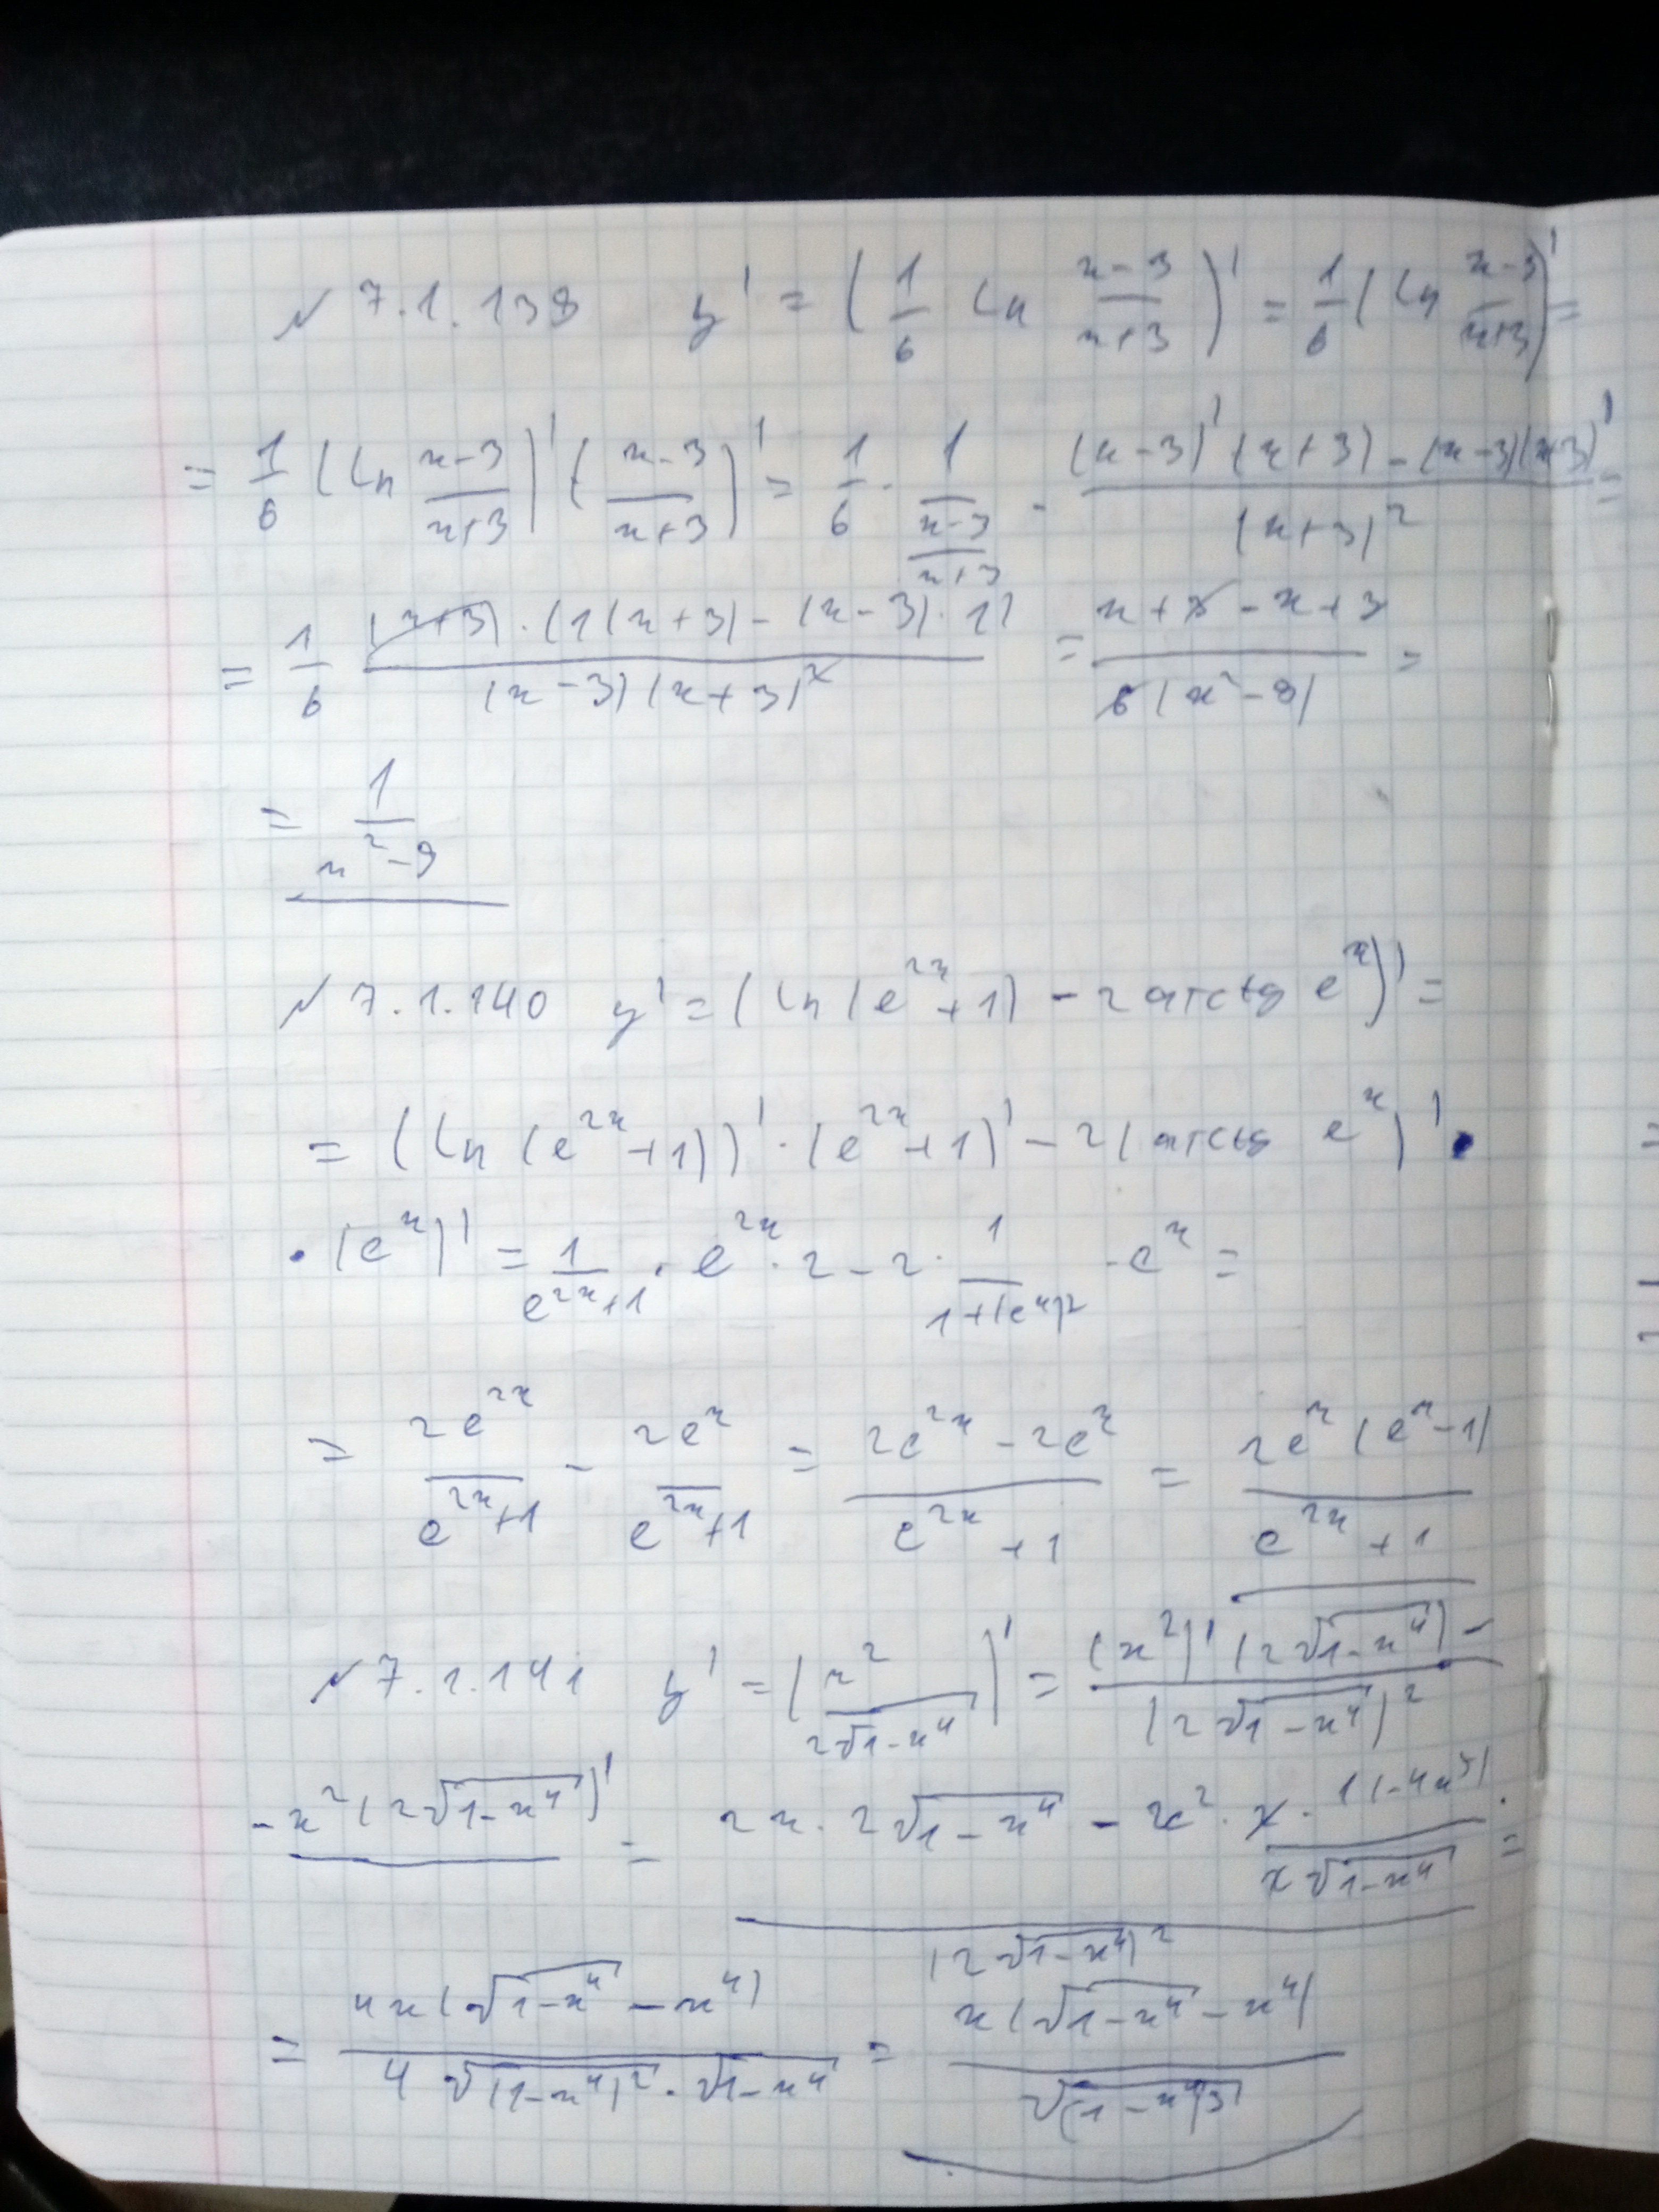 № 7.1.139 y' = (1/6 ln (x-3)/(x+3))' = 1/6 (ln (x-3)/(x+3))' =
= 1/6 (ln (x-3)/(x+3))' ((x-3)/(x+3))' = 1/6 · 1/((x-3)/(x+3)) · ((x-3)'(x+3) - (x-3)(x+3)')/(x+3)² =
= 1/6 ((x+3) · (1(x+3) - (x-3)·1))/((x-3)(x+3)²) = (x+3-x+3)/(6(x²-9)) =
= 1/(x²-9)
№ 7.1.140 y' = (ln(e^(2x)+1) - 2 arctg e^x)' =
= (ln(e^(2x)+1))' · (e^(2x)+1)' - 2(arctg e^x)' ·
· (e^x)' = 1/(e^(2x)+1) · e^(2x) · 2 - 2 · 1/(1+(e^x)²) · e^x =
= 2e^(2x)/(e^(2x)+1) - 2e^x/(e^(2x)+1) = (2e^(2x) - 2e^x)/(e^(2x)+1) = 2e^x(e^x-1)/(e^(2x)+1)
№ 7.1.141 y' = (x²/(2√(1-x⁴)))' = ((x²)'(2√(1-x⁴)) -)/(2√(1-x⁴))²
- x²(2√(1-x⁴))' = (2x · 2√(1-x⁴) - x² · 2 · 1(-4x³)/(2√(1-x⁴)))/(2√(1-x⁴))² =
= 4x(√(1-x⁴) - x⁴)/(4√((1-x⁴)²) · √(1-x⁴)) = x(√(1-x⁴) - x⁴)/√((1-x⁴)³)